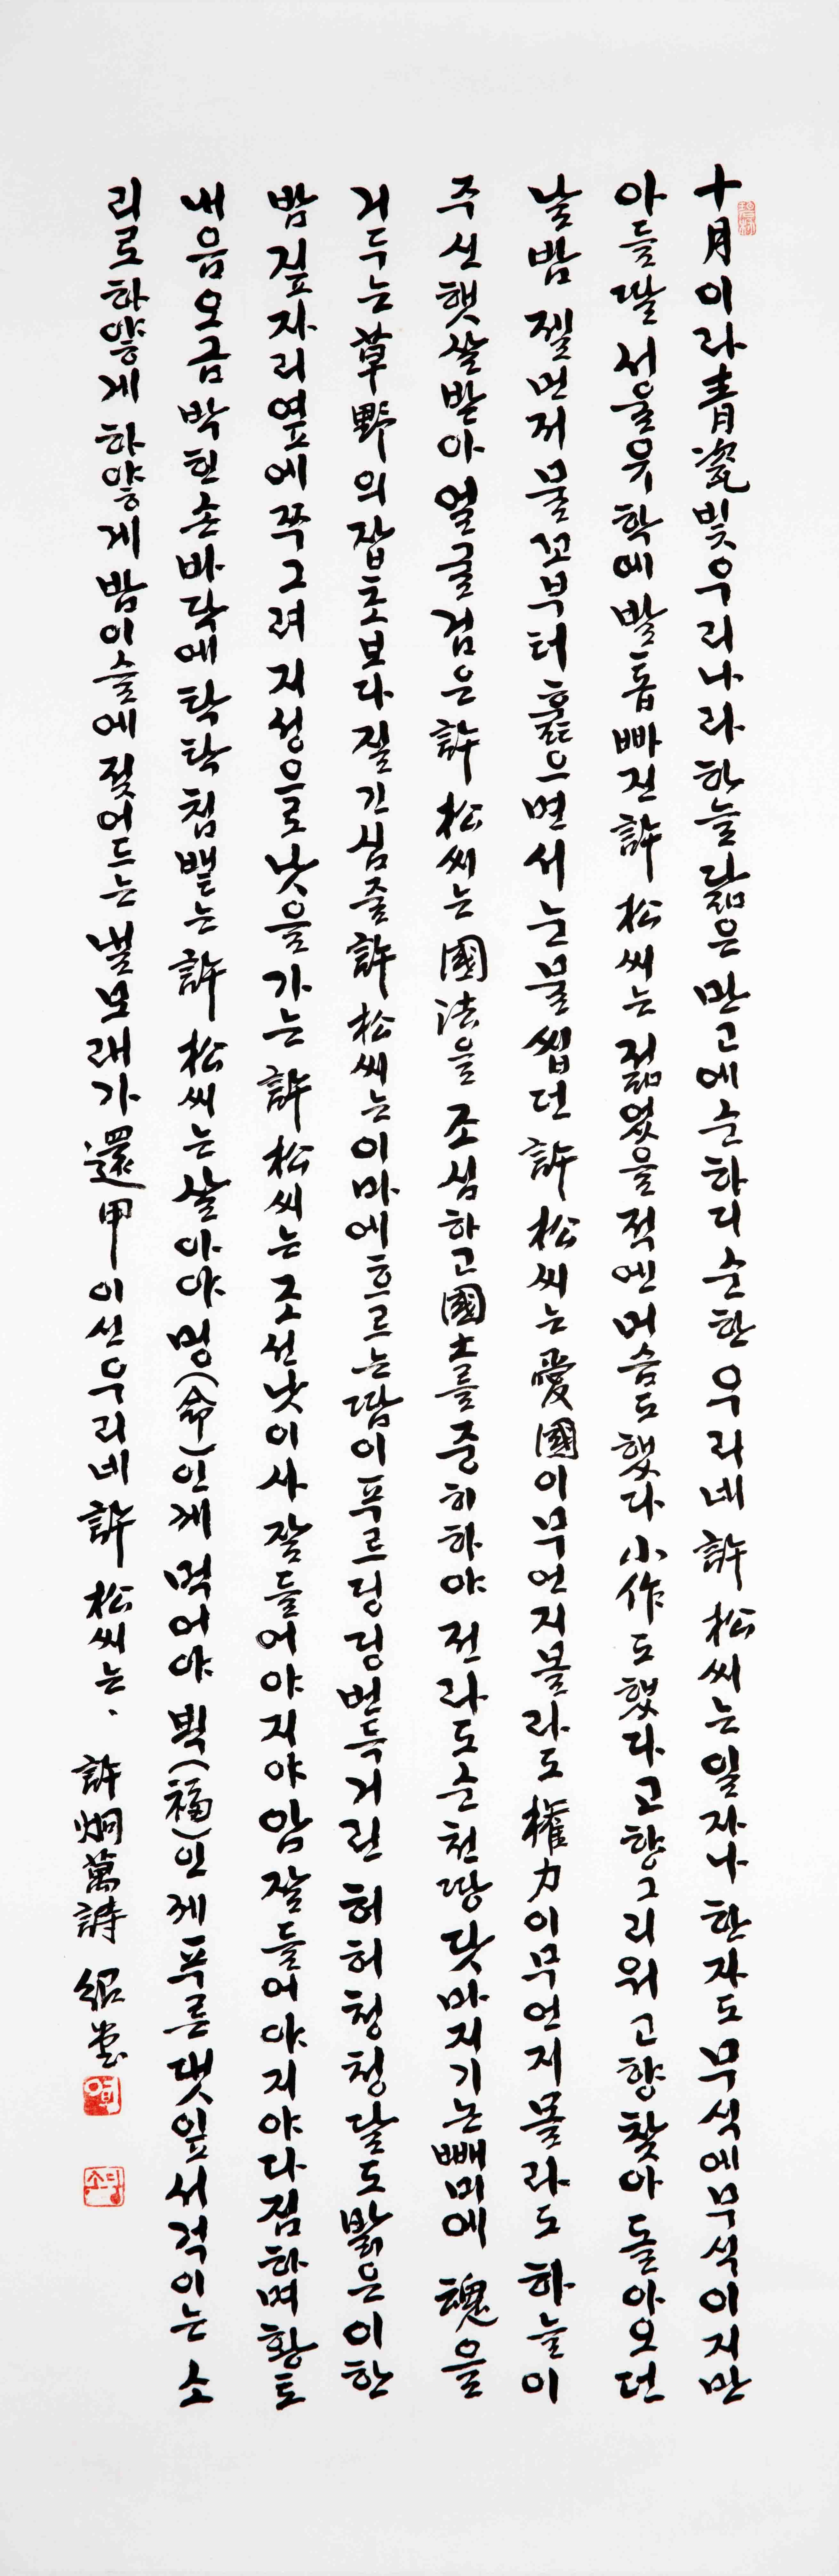 十月이라 靑瓷빛 우리나라 하늘 닮은 만고에 순하디 순한 우리네 許 松씨는 일자나 한자도 무식에 무식이지만
아들딸 서울유학에 발톱 빠진 許 松씨는 젊었을 적엔 머슴도 했다 小作도 했다 고향 그리워 고향 찾아 돌아오던
날 밤 젤 먼저 물꼬부터 훑으면서 눈물 씹던 許 松씨는 愛國이 무언지 몰라도 權力이 무언지 몰라도 하늘이
주신 햇살 받아 얼굴 검은 許 松씨는 國法을 조심하고 國土를 중히 하야 전라도 순천땅 닷마지기 논빼미에 魂을
거두는 草野의 잡초보다 질긴 심줄 許 松씨는 이마에 흐르는 땀이 푸르딩딩 번득거린 허허청청 달도 밝은 이 한
밤 짚자리 옆에 쭈그려 지성으로 낫을 가는 許 松씨는 조선낫이사 잘 들어야지야 암 잘 들어야지야 다짐하며 황토
내음 오금박힌 손바닥에 탁탁 침 뱉는 許 松씨는 살아야 멩(命)인께 먹어야 뵉(福)인께 푸른 댓잎 서걱이는 소
리로 하얗게 하얗게 밤이슬에 젖어드는 별보래가 還甲이신 우리네 許 松씨는、 許炯萬詩 紹堂